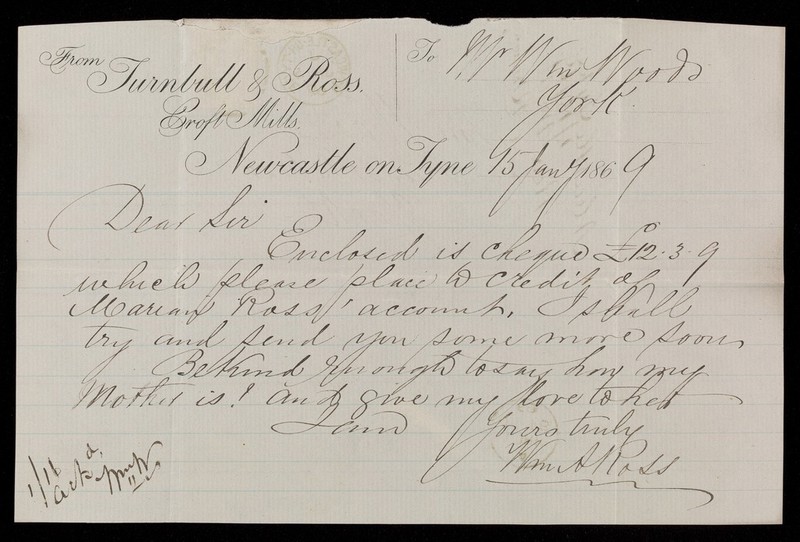 From
Turnbull & Ross.
Croft Mills.
To Mr Wm Woods
York.
Newcastle on Tyne 15 Jany 1869
Dear Sir
Enclosed is cheque £12-3-9
which please place to credit of
Marian Ross' account. I shall
try and send you some more soon.
Be kind enough to say how my
Mother is! and give my love to her
I am Yours truly
Wm A Ross
1/16
ackd.